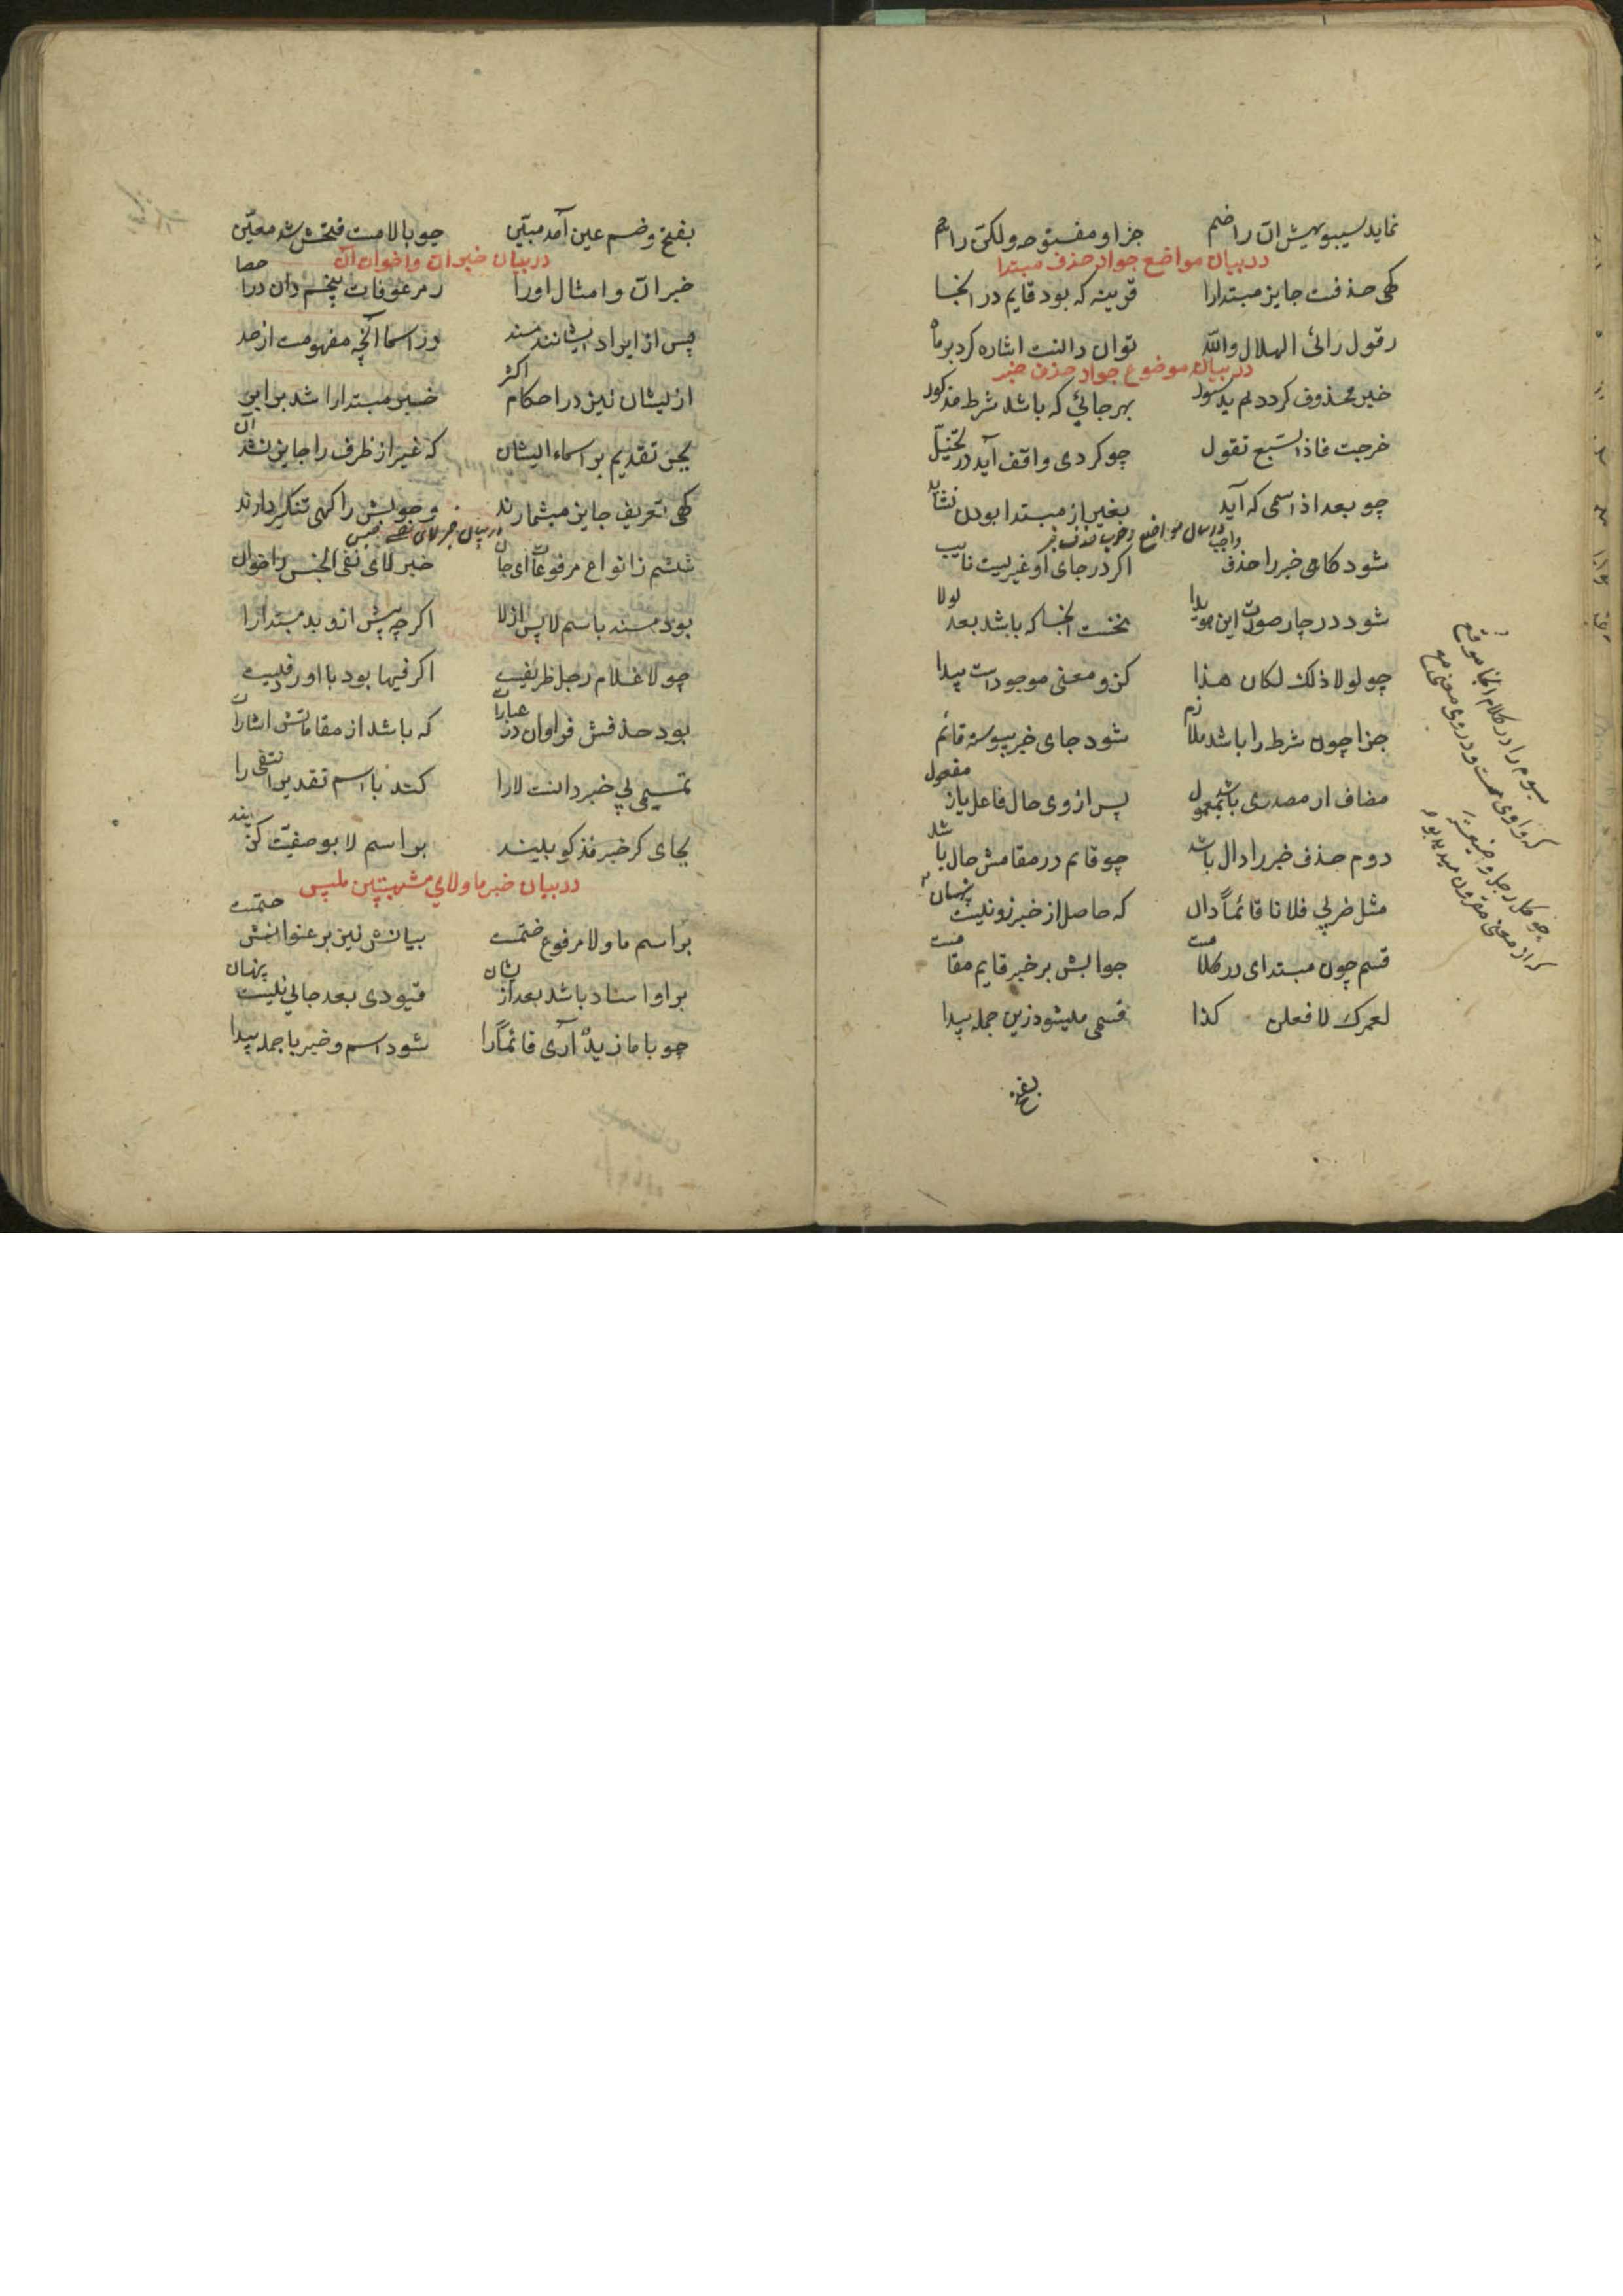 نماید سیبویهیش ان را ضم جز او مفتوحه و لکن را هم
در بیان مواضع جواز حذف مبتدا
کهی حذفست جایز مبتدا را قرینه که بود قایم در انجا
رقول رائی الهلال والله توان دانست اشاره کرد بر ماه
در بیان موضوع جواز حذف خبر
خبر محذوف کردد بهر جائی که باشد شرط مذکور
خرجت فاذا السبع تقول چو کردی واقف آید در تخیّل
چو بعد اذ اسمی که آید بغیر از مبتدا بودن نشاید
در بیان مواضع وجوب حذف خبر
شود کاهی خبر را حذف واجب اکر در جای او غیریست نایب
شود در چار صورت این هویدا نخست انجا که باشد بعد لولا
چو لولا ذلک لکان هذا کزو معنی موجودست پیدا
جزا چون شرط را باشد ملازم شود جای خبر پیوسته قائم
مضاف ار مصدری باشد بمعمول پس از وی حال فاعل یاز مفعول
دوم حذف خبر را دال باشد چو قائم در مقامش حال باشد
مثل ضربی فلانا قائماً دال که حاصل از خبر زو نیست پنهان
قسم چون مبتدای در کلامست جوابش بر خبر قایم مقامست
لعمرک لافعلن کذا قسمی میشود زین جمله پیدا
سیوم را در کلام انجا موقع
که واوی هست و در وی معنی مع
چو کل رجل و ضیعته
کز معنی مقرون
بفتح و ضم عین آمد مبیّن چو بالامت فتحش شد معیّن
در بیان خبر ان و اخوان آن
خبر ان و امثال او را ز مرعوفات پنجم دان در احصا
پس از ایراد ایشانند مسند وز اسما انچه مفهومست از حد
ازیشان نیز در احکام اکثر خبر مبتدا را شد برابر
بجز تقدیم بر اسماء ایشان که غیر از ظرف را جایز نشد آن
کهی تعریف جایز میشمارند وجوبش را کهی تنکیر دارند
در بیان خبر لای نفی جنس
ششم زانواع مرفوعات ای جان خبر لای نفی الجنس را خوان
بود مسند باسم لا پس از لا اکرچه پیش ازو بد مبتدا را
چو لا غلام رجل ظریفیست اکر فیها بود با او ردیفیست
بود حذفش فراوان در عبارات که باشد از مقاماتش اشارات
تمیمی بی خبر دانست لا را کند با اسم تقدیر انتفی را
بجای کر خبر مذکور بیند بر اسم لا بوصفیّت کزیند
در بیان خبر ما و لای مشبهتین بلیس
بر اسم ما و لا مرفوع ختمست بیانش نیز بر عنوانش ختمست
بر او اسناد باشد بعد ازیشان قیودی بعد حالی نیست پنهان
چو با ما زیدٌ آری قائماً را شود اسم و خبر با جمله پیدا